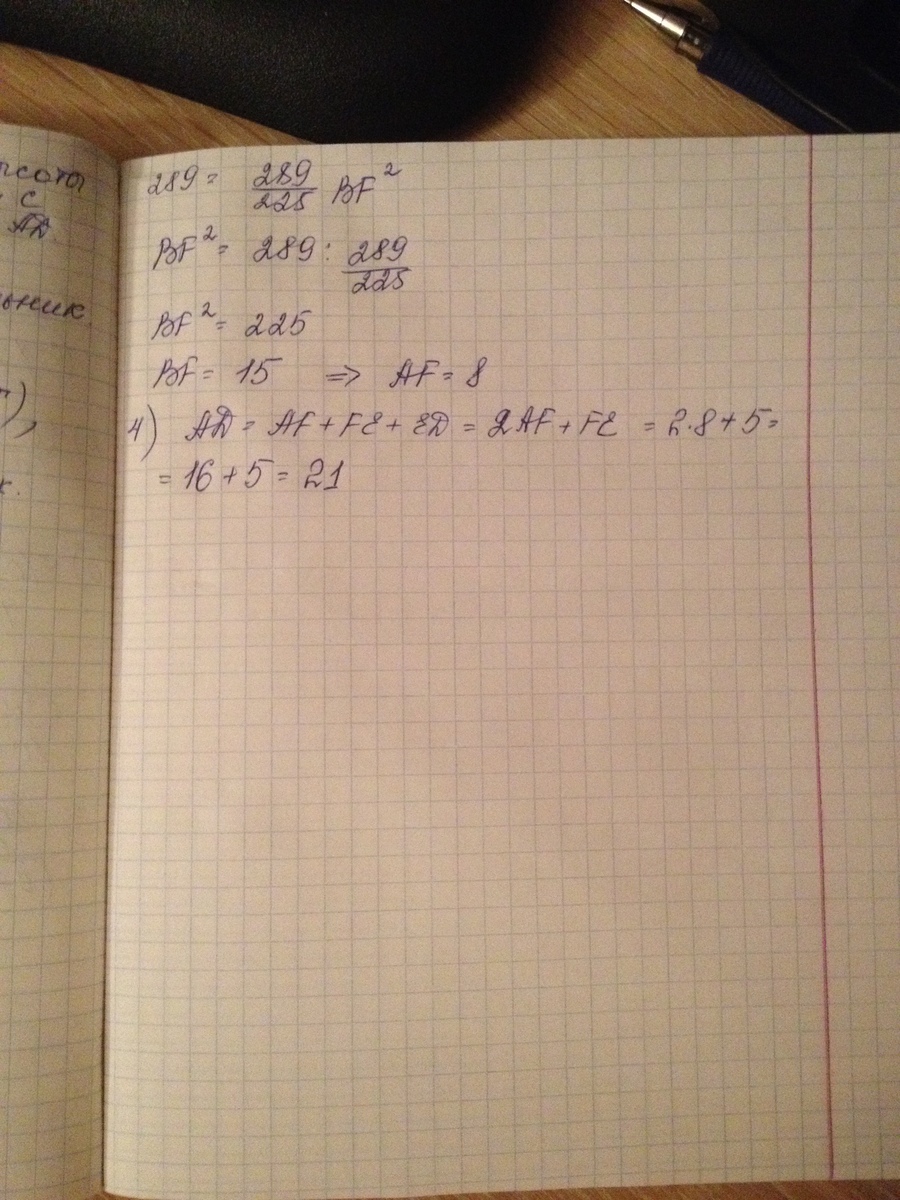 с
AD.
289 = 289/225 BF²
BF² = 289 : 289/225
BF² = 225
BF = 15 ⇒ AF = 8
4) AD = AF + FE + ED = 2AF + FE = 2·8+5=
= 16 + 5 = 21